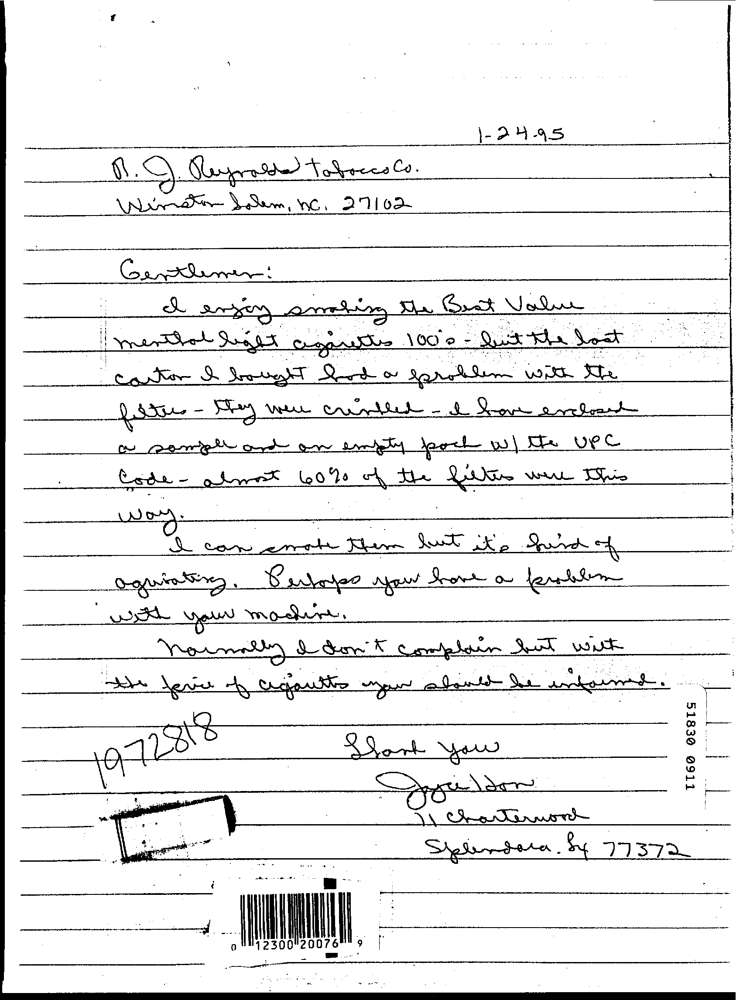 1-24-95
R. J. Reynolds Tobacco Co.
Winston Salem, NC. 27102
Gentlemen:
I enjoy smoking the Best Value
menthol light cigarettes 100's - but the last
carton I bought had a problem with the
filters - they were crinkled - I have enclosed
a sample and an empty pack w/ the UPC
Code - almost 60% of the filters were this
way.
I can smoke them but it's kind of
agurating. Perhaps you have a problem
with your machine.
Normally I don't complain but with
the price of cigarettes you should be informed.
51830 0911
1972818
Thank you
Joyce
71 Charterwood
Splendora. Tx 77372
0 12300 20076 9